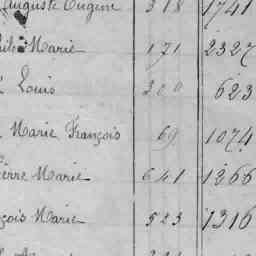 Auguste Eugène 318 1741
Marie 171 2327
Louis 300 623
Marie François 69 1074
Pierre Marie 641 1366
çois Marie 523 1316